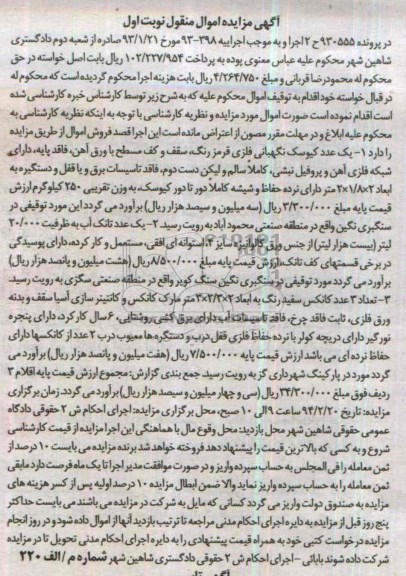 آگهی مزایده اموال منقول نوبت اول
در پرونده ۹۳۰۵۵۵ ح ۲ اجرا و به موجب اجراییه ۳۹۸-۹۳ مورخ ۹۳/۱/۲۱ صادره از شعبه دوم دادگستری
شاهین شهر محکوم علیه عباس معنوی پوده به پرداخت ۱۰۲/۲۲۷/۹۵۴ ریال بابت اصل خواسته در حق
محکوم له محمودرضا قربانی و مبلغ ۴/۲۶۴/۷۵۰ ریال بابت هزینه اجرا محکوم گردیده است که محکوم له
در قبال خواسته خود اقدام به توقیف اموال محکوم علیه که به شرح زیر توسط کارشناس خبره کارشناسی شده
است اقدام نموده است صورت اموال مورد مزایده و نظریه کارشناسی با توجه به اینکه نظریه کارشناسی به
محکوم علیه ابلاغ و در مهلت مقرر مصون از اعتراض مانده است این اجرا قصد فروش اموال از طریق مزایده
را دارد ۱- یک عدد کیوسک نگهبانی فلزی قرمز رنگ، سقف و کف مسطح با ورق آهن، فاقد پایه، دارای
شبکه فلزی آهن و پروفیل نبشی، کاملاً سالم و لیکن دست دوم، فاقد تاسیسات برق و یا قفل و دستگیره به
ابعاد ۲×۱/۸×۲ متر دارای نرده حفاظ و شیشه کاملا دور تا دور کیوسک، به وزن تقریبی ۲۵۰ کیلوگرم ارزش
قیمت پایه مبلغ ۳/۳۰۰/۰۰۰ ریال (سه میلیون و سیصد هزار ریال) برآورد می گردد این مورد توقیفی در
سنگبری نگین واقع در منطقه صنعتی محمود آباد به رویت رسید. ۲- یک عدد تانک آب به ظرفیت ۲۰/۰۰۰
لیتر (بیست هزار لیتر) از جنس ورق گالوانیزه سایز ۴، استوانه ای افقی، مستعمل و کار کرده، دارای پوسیدگی
در برخی قسمتهای کف تانک، ارزش قیمت پایه مبلغ ۸/۵۰۰/۰۰۰ ریال (هشت میلیون و پانصد هزار ریال)
برآورد می گردد مورد توقیفی در سنگبری نگین سنگ کویر واقع در منطقه صنعتی سگزی به رویت رسید.
۳- تعداد ۲ عدد کانکس سفید رنگ به ابعاد ۲×۲/۳×۳ متر مارک کانکس و کانتینر سازی آسیا سقف و بدنه
ورق فلزی، ثابت فاقد چرخ، فاقد تاسیسات آب دارای برق کشی روشنایی، ۶ سال کار کرد، دارای پنجره
نورگیر دارای دریچه کولر با نرده حفاظ فلزی قفل درب و دستگیره ها معیوب درب ۲ عدد از کانکسها دارای
حفاظ نرده ای می باشد ارزش قیمت پایه ۷/۵۰۰/۰۰۰ ریال (هفت میلیون و پانصد هزار ریال) برآورد می
گردد مورد در پارکینگ شهرداری گز به رویت رسید. جمع بندی گزارش: مجموع ارزش قیمت پایه اقلام ۳
ردیف فوق مبلغ ۳۴/۳۰۰/۰۰۰ ریال (سی و چهار میلیون و سیصد هزار ریال) برآورد می گردد. زمان برگزاری
مزایده: تاریخ ۹۴/۲/۲۰ ساعت ۹ الی ۱۰ صبح، محل برگزاری مزایده: اجرای احکام ش ۲ حقوقی دادگاه
عمومی حقوقی شاهین شهر محل بازدید: محل وقوع مال با هماهنگی این اجرا مزایده از قیمت کارشناسی
شروع و به کسی که بالاترین قیمت را پیشنهاد دهد فروخته خواهد شد برنده مزایده می بایست ۱۰ درصد از
ثمن معامله را فی المجلس به حساب سپرده واریز و در صورت موافقت مدیر اجرا تا یک ماه فرصت دارد مابقی
ثمن معامله را به حساب سپرده واریز نماید والا ضمن ابطال مزایده ۱۰ درصد اولیه پس از کسر هزینه های
مزایده به صندوق دولت واریز می گردد کسانی که مایل به شرکت در مزایده می باشند می بایست حداکثر
پنج روز قبل از مزایده به دایره اجرای احکام مدنی مراجعه تا ترتیب بازدید آنها از اموال داده شود و در روز انجام
مزایده درخواست کتبی خود به همراه قیمت پیشنهادی را به دایره اجرای احکام مدنی تحویل تا در مزایده
شرکت داده شوند بابائی - اجرای احکام ش ۲ حقوقی دادگستری شاهین شهر شماره م / الف ۲۲۰